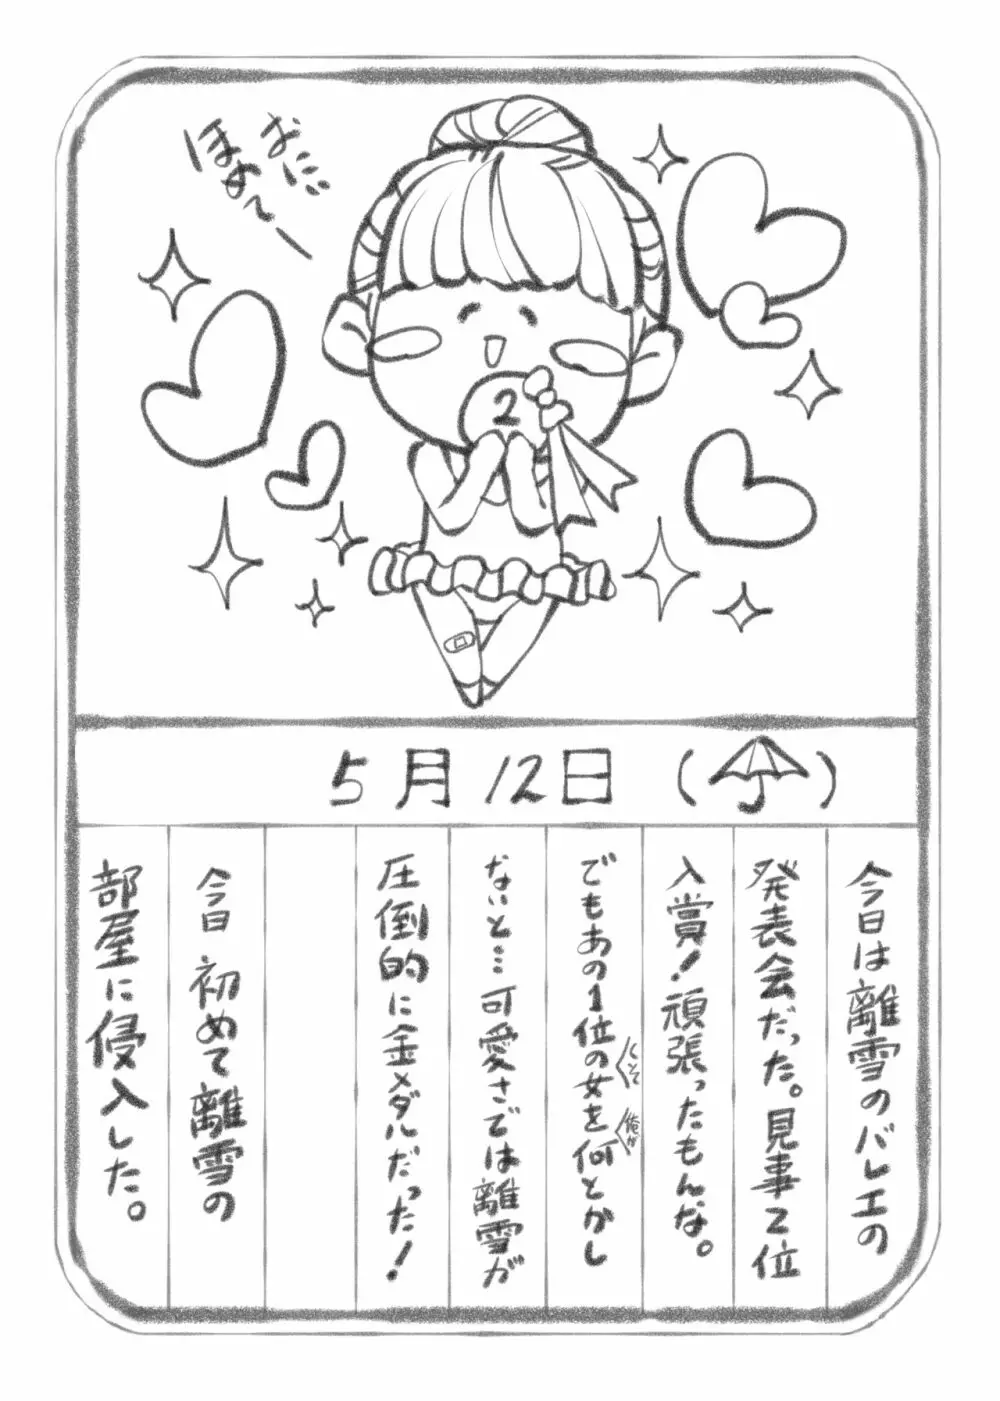 おにい
ほめてー
5月12日(☂)
今日は離雪のバレエの
発表会だった。見事2位
入賞!頑張ったもんな。
でもあの1位の女を何とかし
くそて
俺が
ないと…可愛さでは離雪が
圧倒的に金メダルだった!
今日 初めて離雪の
部屋に侵入した。
2